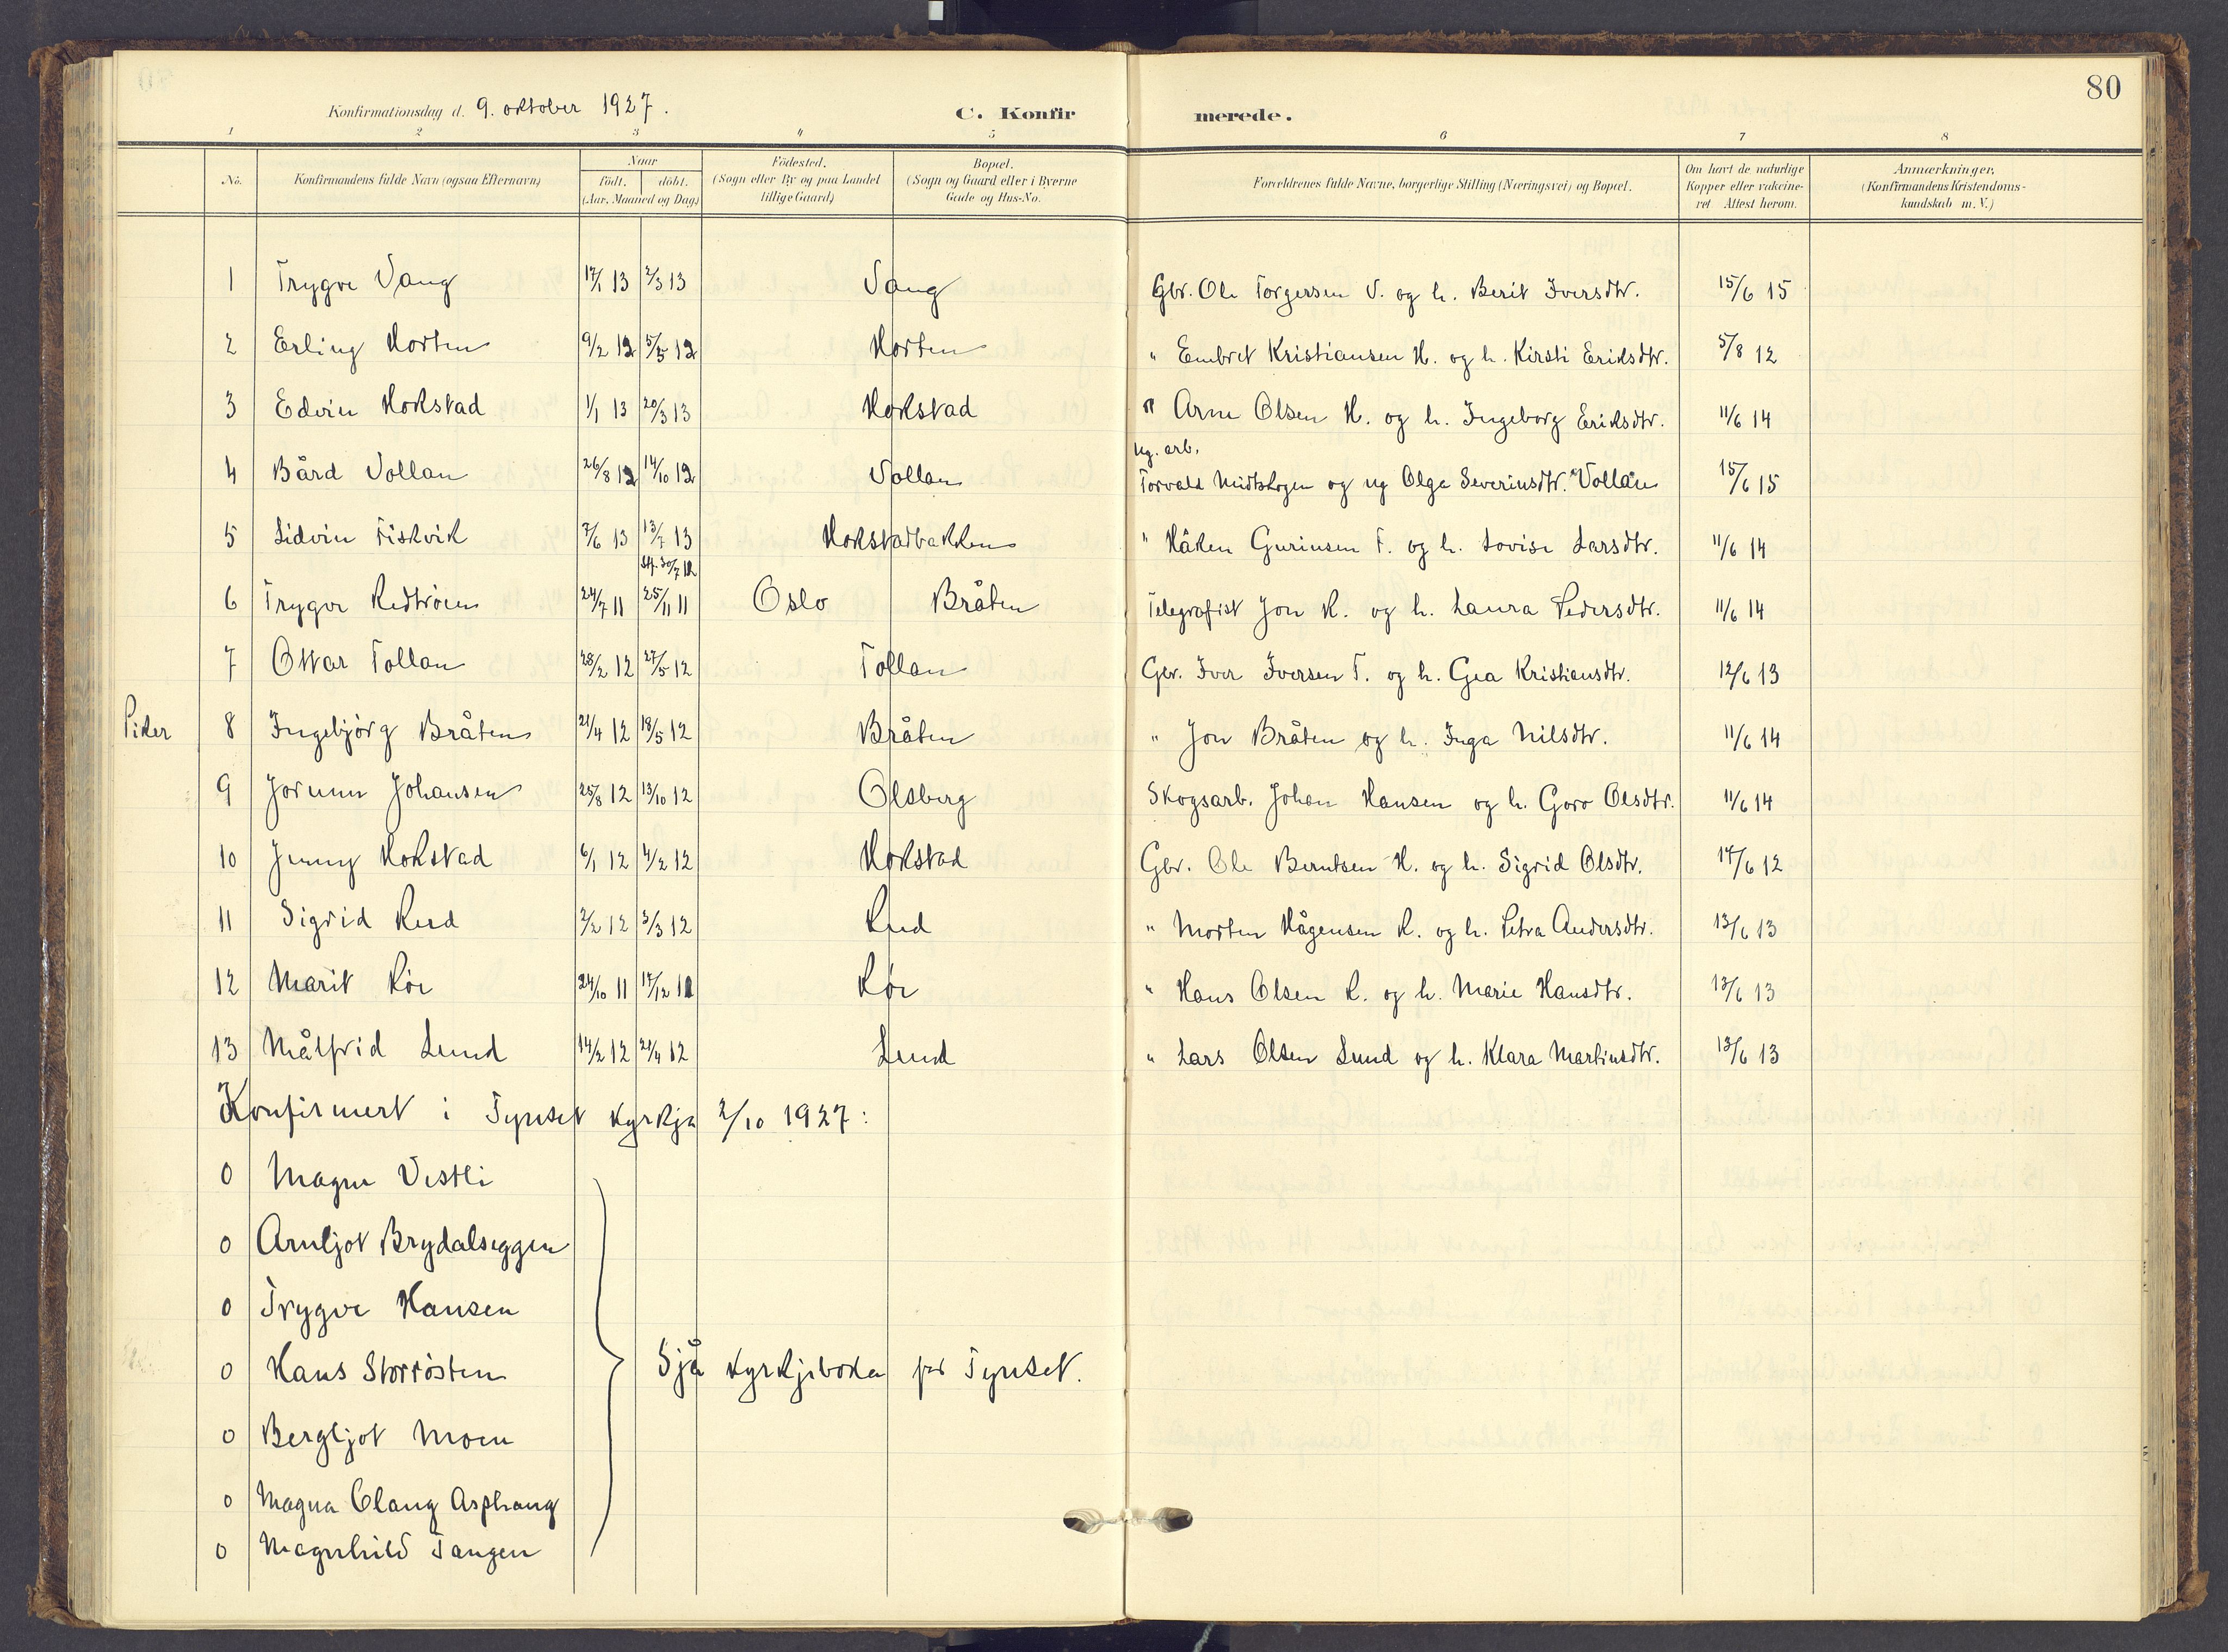 80
Konfirmationsdag d. 9. oktober 1927.
C. Konfirmerede.
1 2 3 4 5 6 7 8
No. Konfirmandens fulde Navn (ogsaa Efternavn) Naar födt. döbt. (Aar, Maaned og Dag) Födested. (Sogn eller By og paa Landet tillige Gaard) Bopæl. (Sogn og Gaard eller i Byerne Gade og Hus-No. Forældrenes fulde Navne, borgerlige Stilling (Næringsvei) og Bopæl. Om havt de naturlige Kopper eller vakcineret Attest herom. Anmærkninger. (Konfirmandens Kristendomskundskab m. V.)
1 Trygve Vang 17/1 13 2/3 13 Vang Gbr. Ole Torgersen V. og h. Berit Iversdtr. 15/6 15
2 Erling Horten 9/2 12 5/5 12 Horten " Embret Kristiansen H. og h. Kirsti Eriksdtr. 5/8 12
3 Edvin Hokstad 1/1 13 20/3 13 Hokstad " Arne Olsen H. og h. Ingeborg Eriksdtr. 11/6 14
4 Bård Vollan 26/8 12 14/10 12 Vollan ug. arb. Torvald Midtskogen og ug Olga Severinsdtr. Vollan 15/6 15
5 Lidvin Fiskvik 7/6 13 13/7 13 Hokstadbakken " Håken Gurinsen F. og h. Lovise Larsdtr. 11/6 14
stf. 30/7 12
6 Trygve Redtröen 24/7 11 25/11 11 Oslo Bråten Telegrafist Jon R. og h. Laura Pedersdtr. 11/6 14
7 Ottar Tollan 28/2 12 27/5 12 Tollan Gbr. Iver Iversen T. og h. Gea Kristiansdtr. 12/6 13
Piker 8 Ingebjörg Bråten 21/4 12 18/5 12 Bråten " Jon Bråten og h. Inga Nilsdtr. 11/6 14
9 Jorunn Johansen 25/8 12 13/10 12 Olsberg Skogsarb. Johan Hansen og h. Goro Olsdtr. 11/6 14
10 Jenny Hokstad 6/1 12 4/2 12 Hokstad Gbr. Ole Berntsen H. og h. Sigrid Olsdtr. 17/6 12
11 Sigrid Rud 2/2 12 3/3 12 Rud " Morten Hågensen R. og h. Petra Andersdtr. 13/6 13
12 Marit Röe 24/10 11 17/12 11 Röe " Hans Olsen R. og h. Marie Hansdtr. 13/6 13
13 Målfrid Lund 14/2 12 21/4 12 Lund " Lars Olsen Lund og h. Klara Martinsdtr. 13/6 13
Konfirmert i Tynset kyrkja 2/10 1927:
0 Magne Vestli
0 Arnljot Brydalseggen
0 Trygve Hansen
0 Hans Storrösten Sjå kyrkjeboka for Tynset.
0 Bergljot Moen
0 Magna Olaug Asphaug
0 Magnhild Tangen